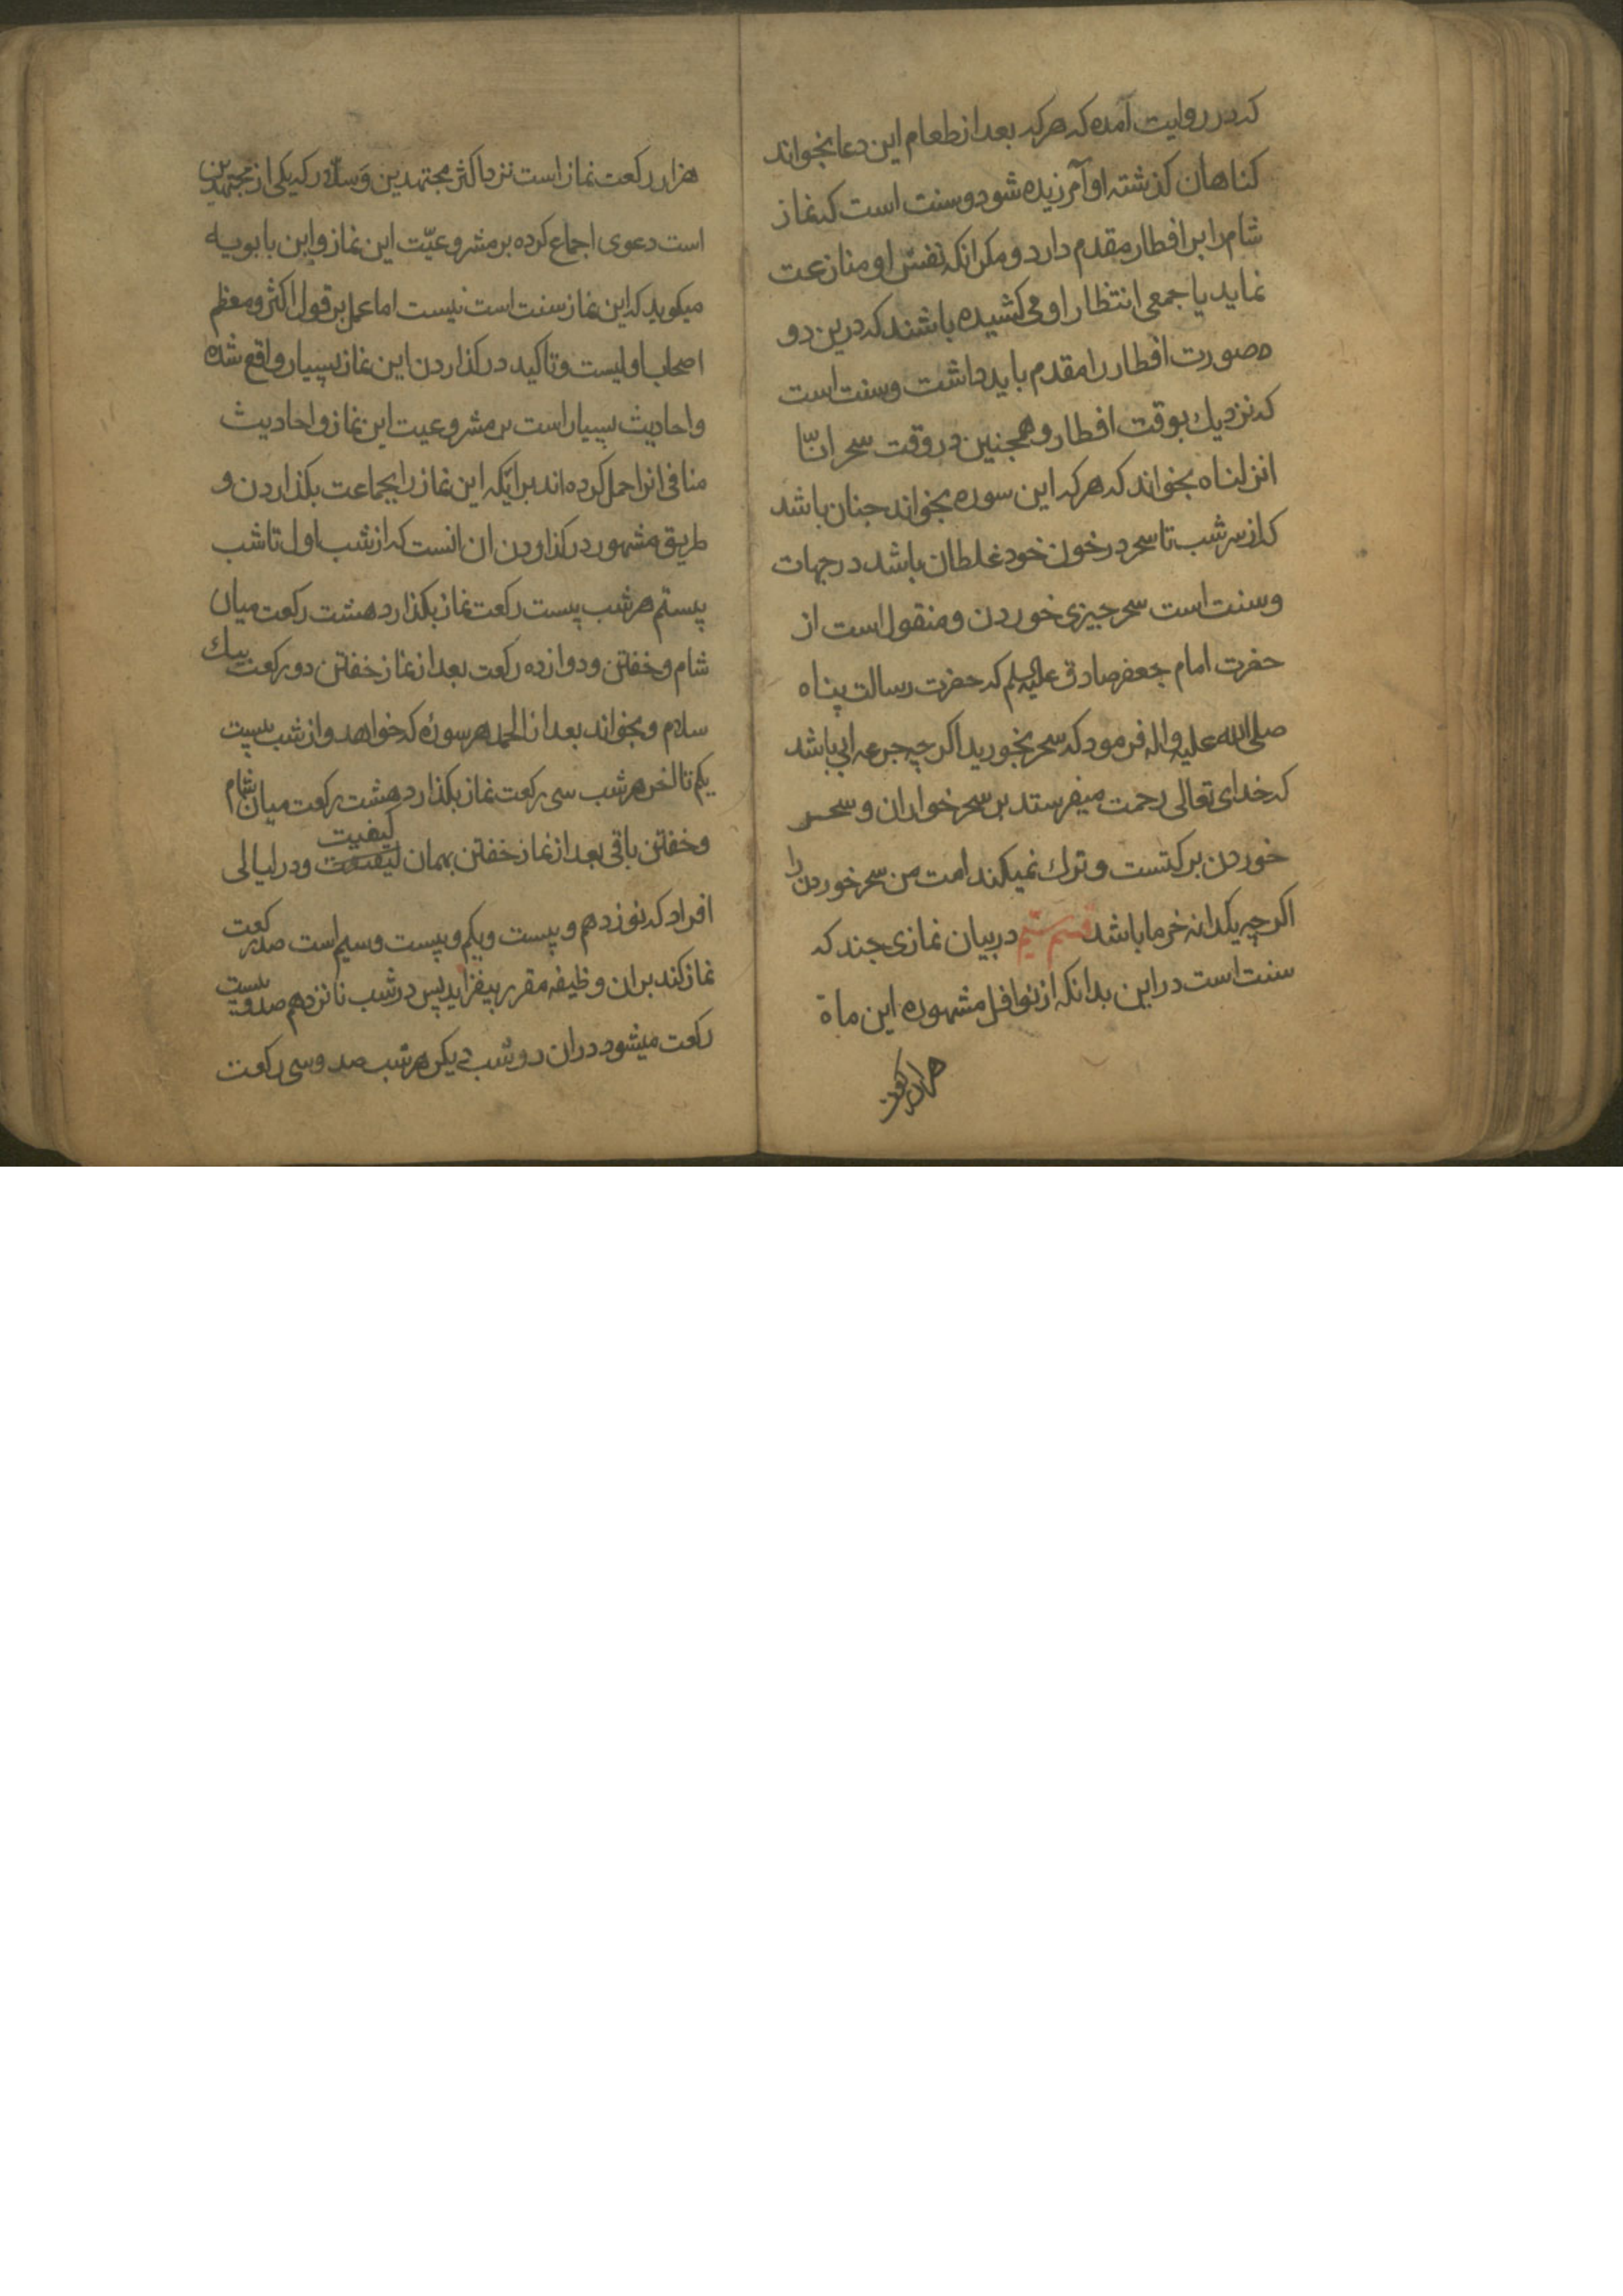 که در روایت آمده که هرکه بعد از طعام این دعا بخواند
کناهان کذشته او آمرزیده شود و سنت است که نماز
شام را بر افطار مقدم دارد و مکر انکه نفس او منازعت
نماید یا جمعی انتظار او می کشیده باشند که درین دو
صورت افطار را مقدم باید داشت و سنت است
که نزدیك بوقت افطار و همجنین در وقت سحر انّا
انزلناه بخواند که هرکه این سوره بخواند جنان باشد
که از سر شب تا سحر در خون خود غلطان باشد در جهات
و سنت است سحر جیزی خوردن و منقول است از
حضرت امام جعفر صادق علیه السلم که حضرت رسالت پناه
صلی الله علیه واله فرمود که سحر بخورید اکر چه جرعه ابی باشد
که خدای تعالی رحمت میفرستد بر سحر خواران و سحر
خوردن برکتست و ترك نمیکند امت من سحر خوردن را
اکر چه یکدانه خرما باشد قسم ششم در بیان نمازی جند که
سنت است در این بدانکه از نوافل مشهوره این ماه
هزار رکعت
هزار رکعت نماز است نزد اکثر مجتهدین وسلار که یکی از مجتهدین
است دعوی اجماع کرده بر مشروعیّت این نماز و ابن بابویه
میکوید که این نماز سنت است نیست اما عمل بر قول اکثر و معظم
اصحاب اولیست و تاکید در کذاردن این نماز بسیار واقع شده
و احادیث بسیار است بر مشروعیت این نماز و احادیث
منافی انرا حمل کرده اند بر انکه این نماز را بجماعت بکذاردن و
طریق مشهور در کذاردن ان انست که از شب اول تا شب
بیستم هر شب بیست رکعت نماز بکذارد هشت رکعت میان
شام و خفتن و دوازده رکعت بعد از نماز خفتن دو رکعت بیك
سلام و بخواند بعد از الحمد هر سوره که خواهد و از شب بیست
یکم تا اخر هر شب سی رکعت نماز بکذارد هشت رکعت میان شام
و خفتن باقی بعد از نماز خفتن بهمان کیفیت و در لیالی
افراد که نوزدهم و بیست و یکم و بیست و سیم است صد رکعت
نماز کند بر ان وظیفه مقرر بیفزاید پس در شب نانزدهم صد و بیست
رکعت میشود در ان دو شب دیکر هر شب صد و سی رکعت